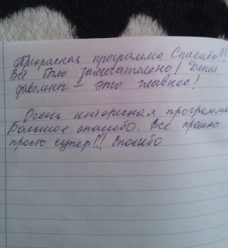 Прекрасная программа Спасибо!!!
Все было замечательно! Дети
довольны – это главное!
Очень интересная программа
Большое спасибо. Все прошло
просто супер!!! Спасибо